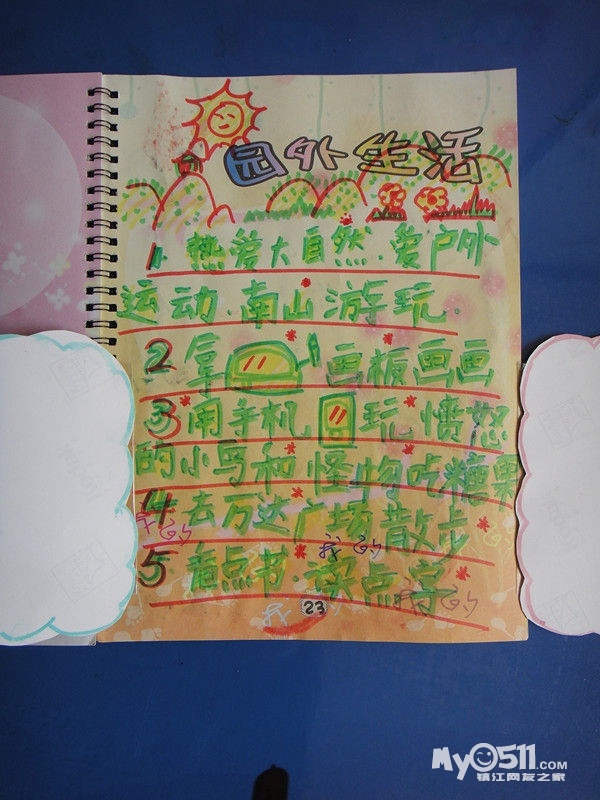 园外生活
1 热爱大自然.爱户外
运动.南山游玩.
2 拿画板画画
3 用手机玩愤怒
的小鸟和怪物吃糖果
4 去万达广场散步
5 看点书.读点字
23
MY0511.COM
镇江网友之家